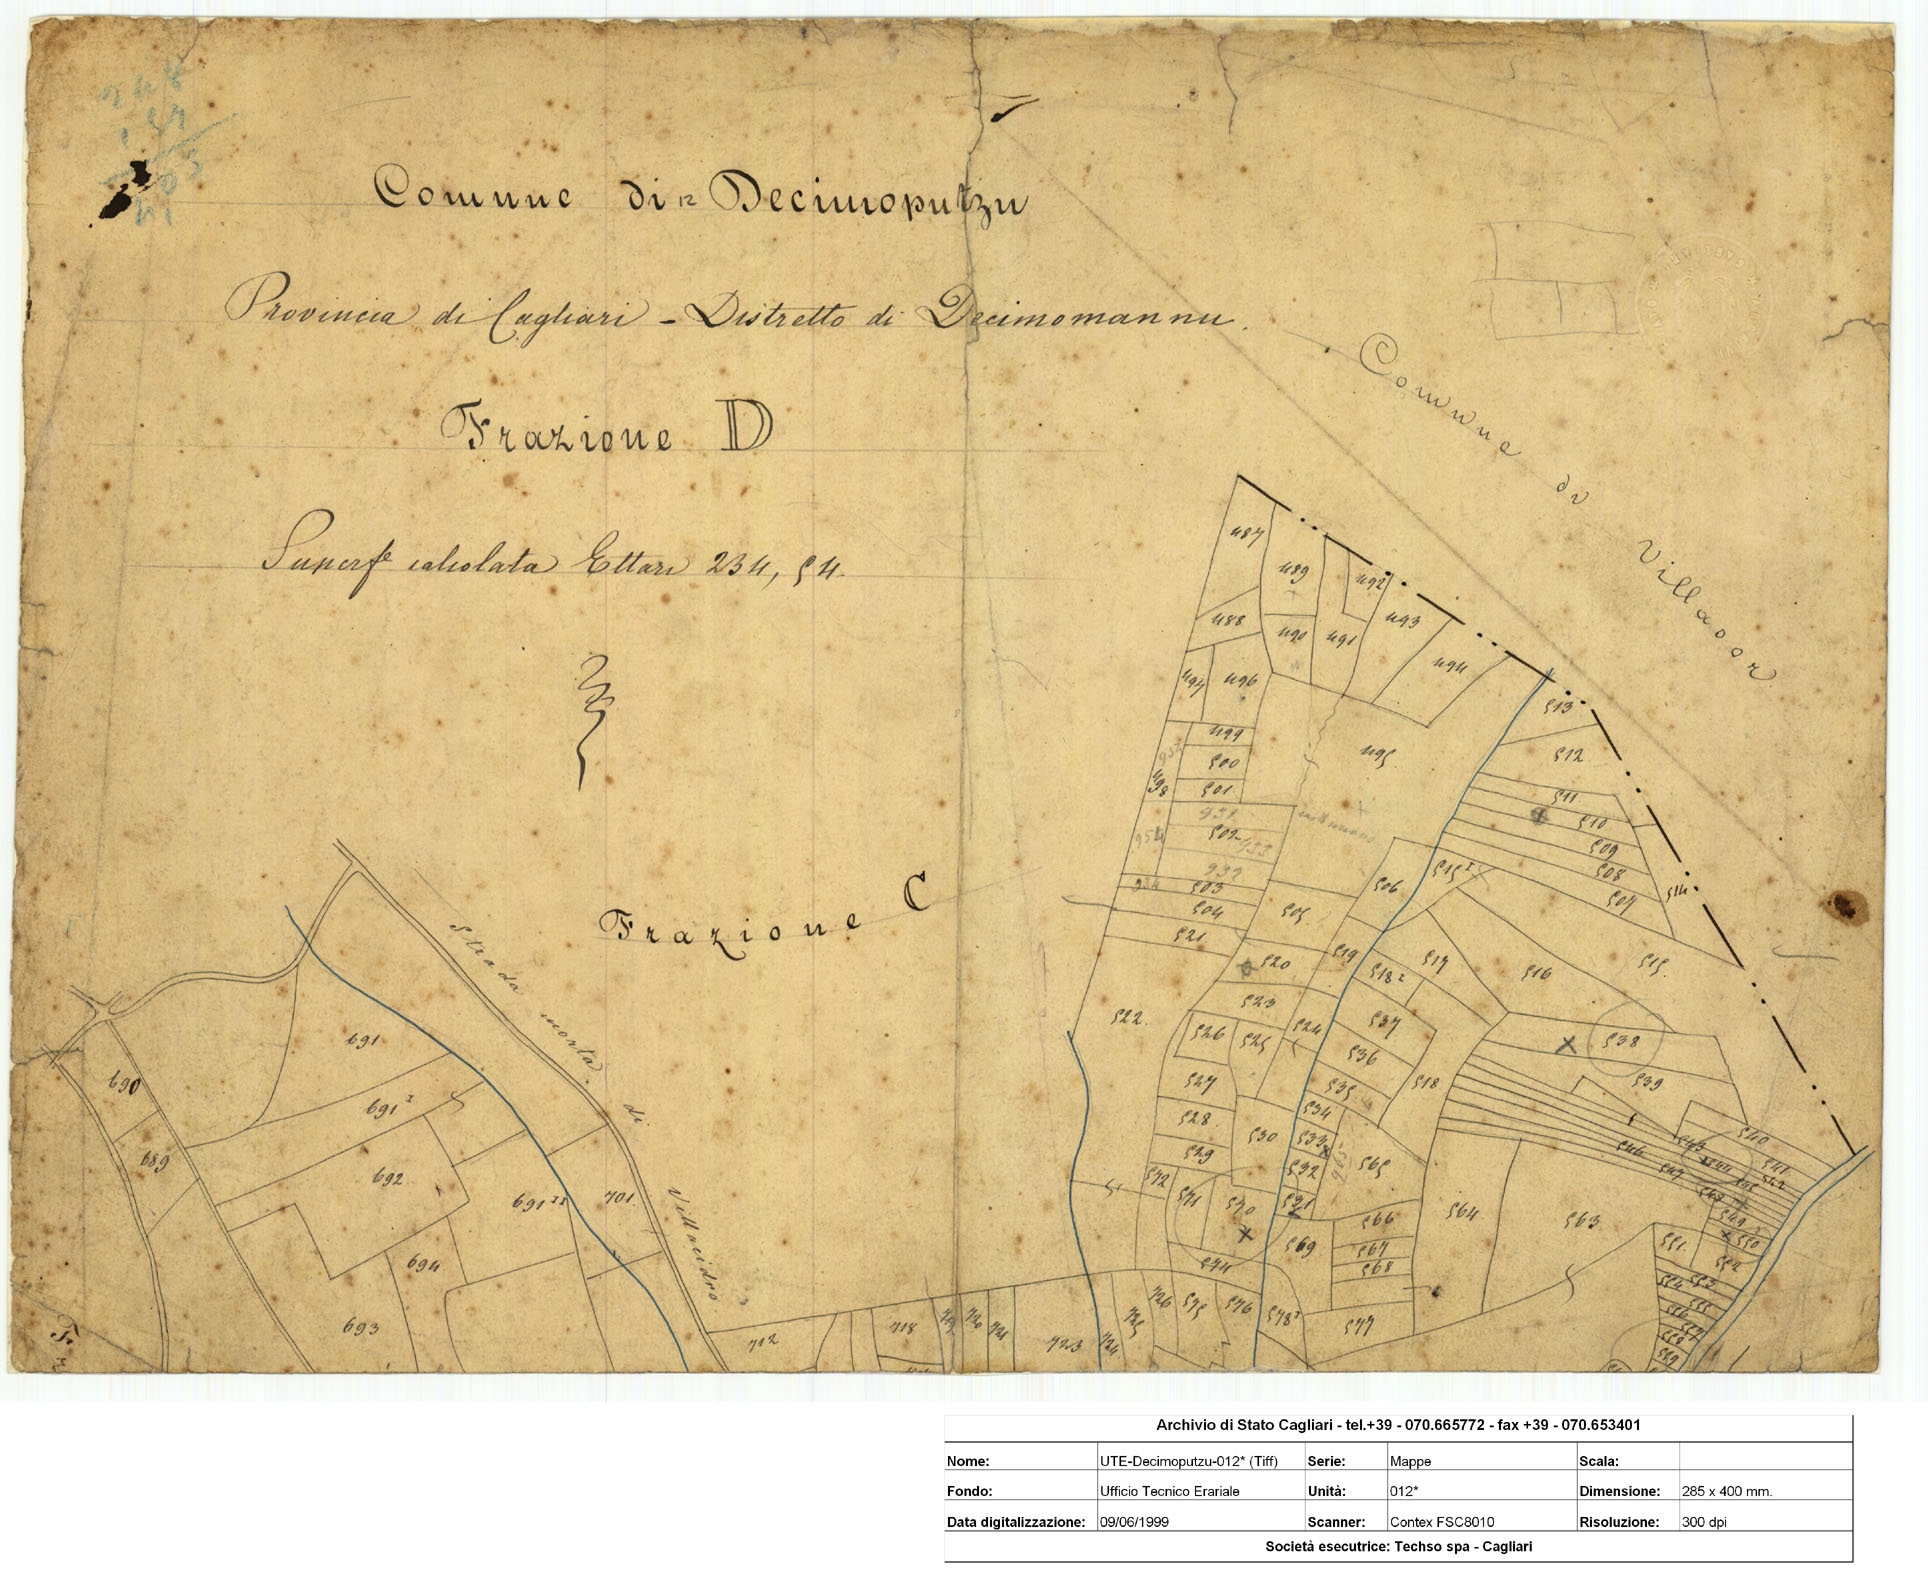 Comune di 12 Decimoputzu
Provincia di Cagliari - Distretto di Decimomannu.
Frazione D
Superf.e calcolata Ettari 234,54.
Comune di Villasor
Frazione C
Strada morta di Villacidro
487
489
492
493
488
490
491
494
497
496
513
499
495
512
498
500
501
511
510
502
509
954
508
503
506
515 I
507
514
504
505
521
520
519
518 2
517
516
515
522
523
526
525
524
537
538
527
536
539
535
518
528
534
530
533
540
529
532
565
541
572
571
570
531
546
547
544
566
564
563
549
550
574
569
567
568
551
552
726
575
576
578 I
577
691
690
691 I
689
692
691 II
701
694
693
712
718
720
721
723
724
725
Archivio di Stato Cagliari - tel.+39 - 070.665772 - fax +39 - 070.653401
Nome: UTE-Decimoputzu-012* (Tiff) Serie: Mappe Scala:
Fondo: Ufficio Tecnico Erariale Unità: 012* Dimensione: 285 x 400 mm.
Data digitalizzazione: 09/06/1999 Scanner: Contex FSC8010 Risoluzione: 300 dpi
Società esecutrice: Techso spa - Cagliari